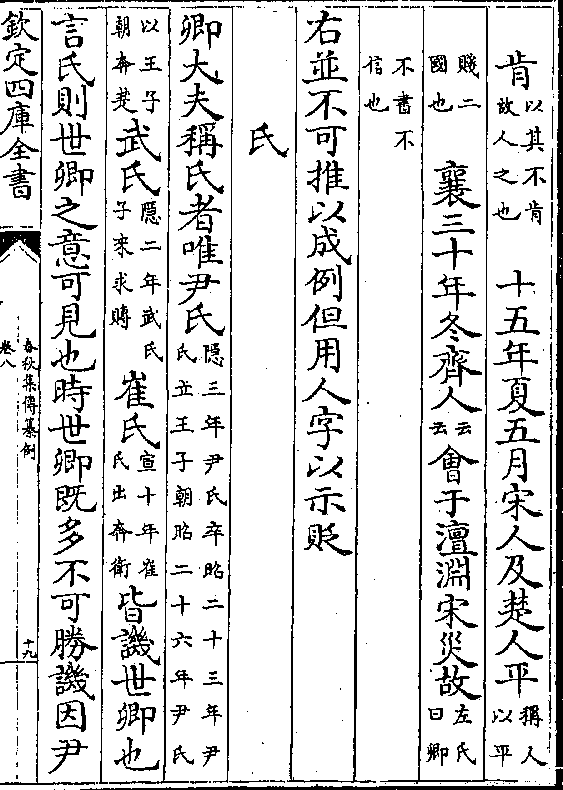 肯以其不肯故人之也 十五年夏五月宋人及楚人平稱人以平
賤二國也 襄三十年冬齊人云云會于澶淵宋災故左氏曰卿
不書不信也
右並不可推以成例但用人字以示貶
氏
卿大夫稱氏者唯尹氏隱三年尹氏卒昭二十三年尹氏立王子朝昭二十六年尹氏
以王子朝奔楚武氏隱二年武氏子來求賻崔氏宣十年崔氏出奔衛皆譏世卿也
言氏則世卿之意可見也時世卿既多不可勝譏因尹
欽定四庫全書
春秋集傳纂例
卷八
十九